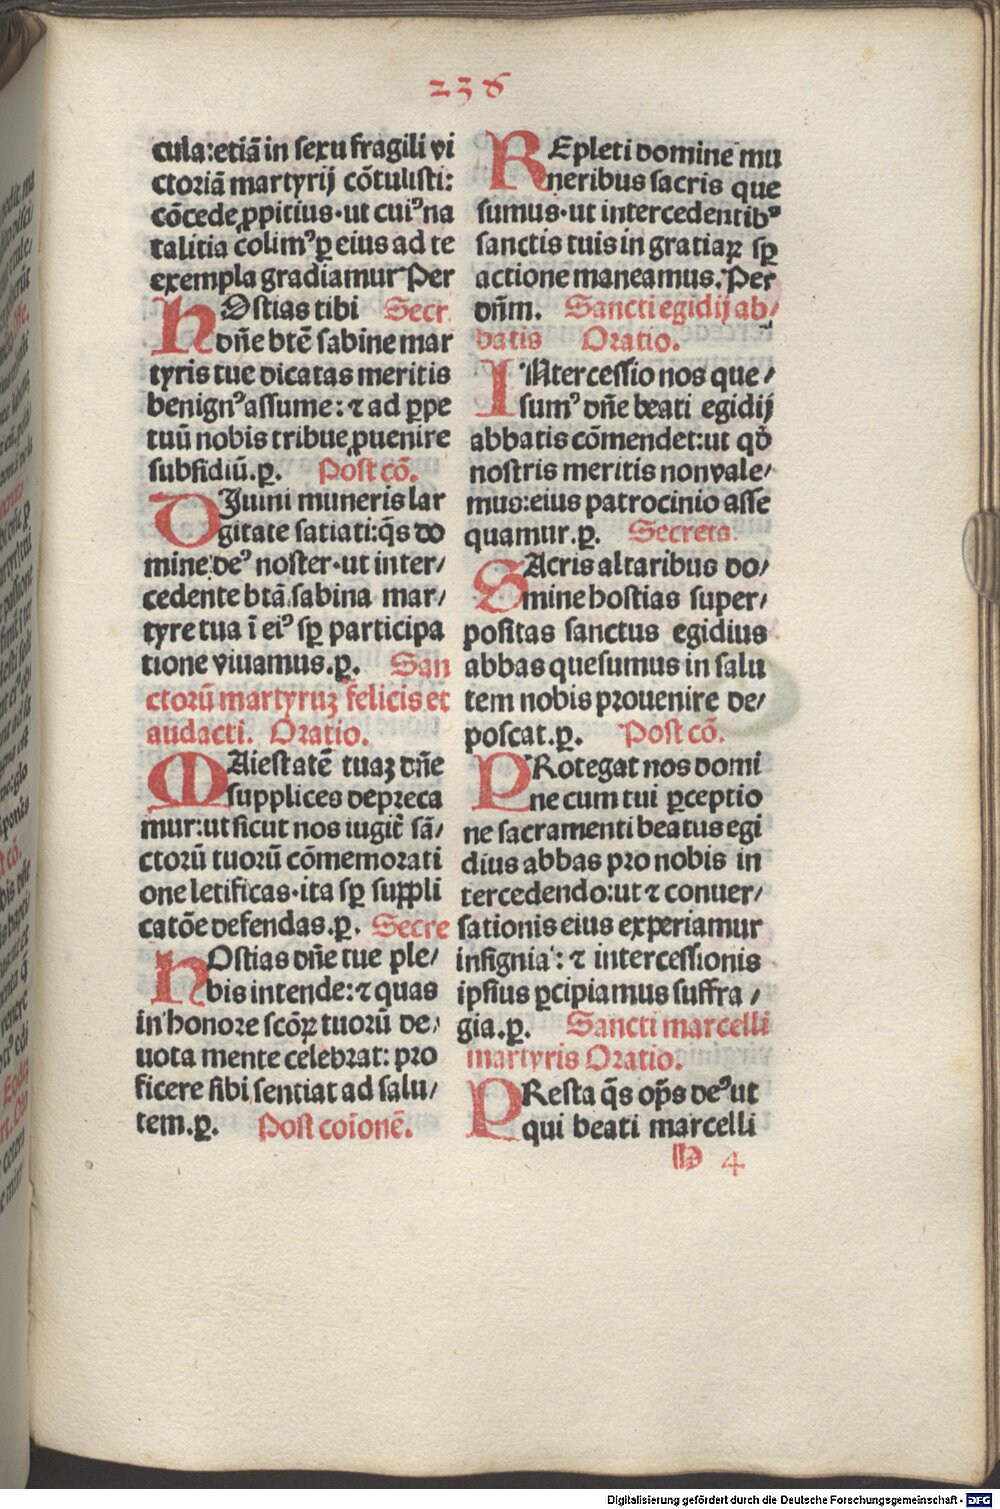 238
cula:etiã in sexu fragili vi
ctoriã martyrij cõtulisti:
cõcede ꝓpitius·ut cuiꝰ na
talitia colimꝰ ꝑ eius ad te
exempla gradiamur Per
HOstias tibi Secr.
dñe btẽ sabine mar
tyris tue dicatas meritis
benignꝰ assume: ⁊ ad ꝑpe
tuũ nobis tribue ꝓuenire
subsidiũ.ꝑ. Post cõ.
DIuini muneris lar
gitate satiati:q̃s do
mine deꝰ noster·ut inter/
cedente btã sabina mar/
tyre tua ĩ eiꝰ sꝑ participa
tione viuamus.ꝑ. San
ctorũ martyruꝫ felicis et
audacti. Oratio.
MAiestatẽ tuaꝫ dñe
supplices depreca
mur:ut sicut nos iugit̃ sã/
ctorũ tuorũ cõmemorati
one letificas·ita sꝑ suppli
catõe defendas.ꝑ. Secre
HOstias dñe tue ple/
bis intende: ⁊ quas
in honore scõꝝ tuorũ de/
uota mente celebrat: pro
ficere sibi sentiat ad salu/
tem.ꝑ. Post coionẽ.
REpleti domine mu
neribus sacris que
sumus·ut intercedentibꝰ
sanctis tuis in gratiaꝝ sꝑ
actione maneamus. Per
dñm. Sancti egidij ab/
batis Oratio.
INtercessio nos que/
sumꝰ dñe beati egidij
abbatis cõmendet:ut qð
nostris meritis non vale/
mus:eius patrocinio asse
quamur.ꝑ. Secreta.
SAcris altaribus do/
mine hostias super/
positas sanctus egidius
abbas quesumus in salu
tem nobis prouenire de/
poscat.ꝑ. Post cõ.
PRotegat nos domi
ne cum tui ꝑceptio
ne sacramenti beatus egi
dius abbas pro nobis in
tercedendo:ut ⁊ conuer/
sationis eius experiamur
insignia: ⁊ intercessionis
ipsius ꝑcipiamus suffra/
gia.ꝑ. Sancti marcelli
martyris Oratio.
PResta q̃s op̃s deꝰ ut
qui beati marcelli
h 4
Digitalisierung gefördert durch die Deutsche Forschungsgemeinschaft - DFG